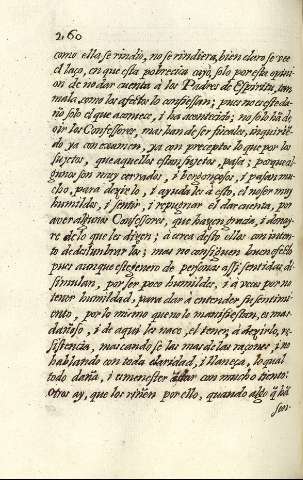 260
como ella se rindio, no se rindiera, bien claro se vee
el laço, en que esta pobrecita cayó, solo por este opini
on de no dar cuenta à los Padres de Espiritu, tan
mala, como los efectos lo confiesan; pues no es este da
ño solo el que acontece, i ha acontecido; no solo hã de
oir los Confessores, mas han de ser fiscales, inquiriẽ
do, ya con examen, ya con precepto lo que por los
sujetos, que a aquellos estan sujetos, pasa; porque al
gunos son muy cerrados, i bergonçosos, i pasan mu
cho, para dezirlo, i ayudales à esto, el no ser muy
humildes, i sentir, i repugnar el dar cuenta, por
aver algunos Confessores, que hazen gracia, i donay
re de lo que les dizen; à cerca desto ellos con inten
to de deslumbrarlos; mas no consiguen buen efecto
pues aunque este genero de personas assi sentidas, di
simulan, por ser poco humildes, i à veces por no
tener humildad, para dar à entender su sentimi
ento, por lo mismo que no lo manifiestan, es mas
dañoso, i de aqui les nace, el tener, à dezirlo, re
sistencia, mascando se las mas de las raçones, i no
hablando con toda claridad, i llaneça, lo qual
todo daña, i es menester estar con mucho tiento:
otros ay, que los riñen por ello, quando algo q̃ hã